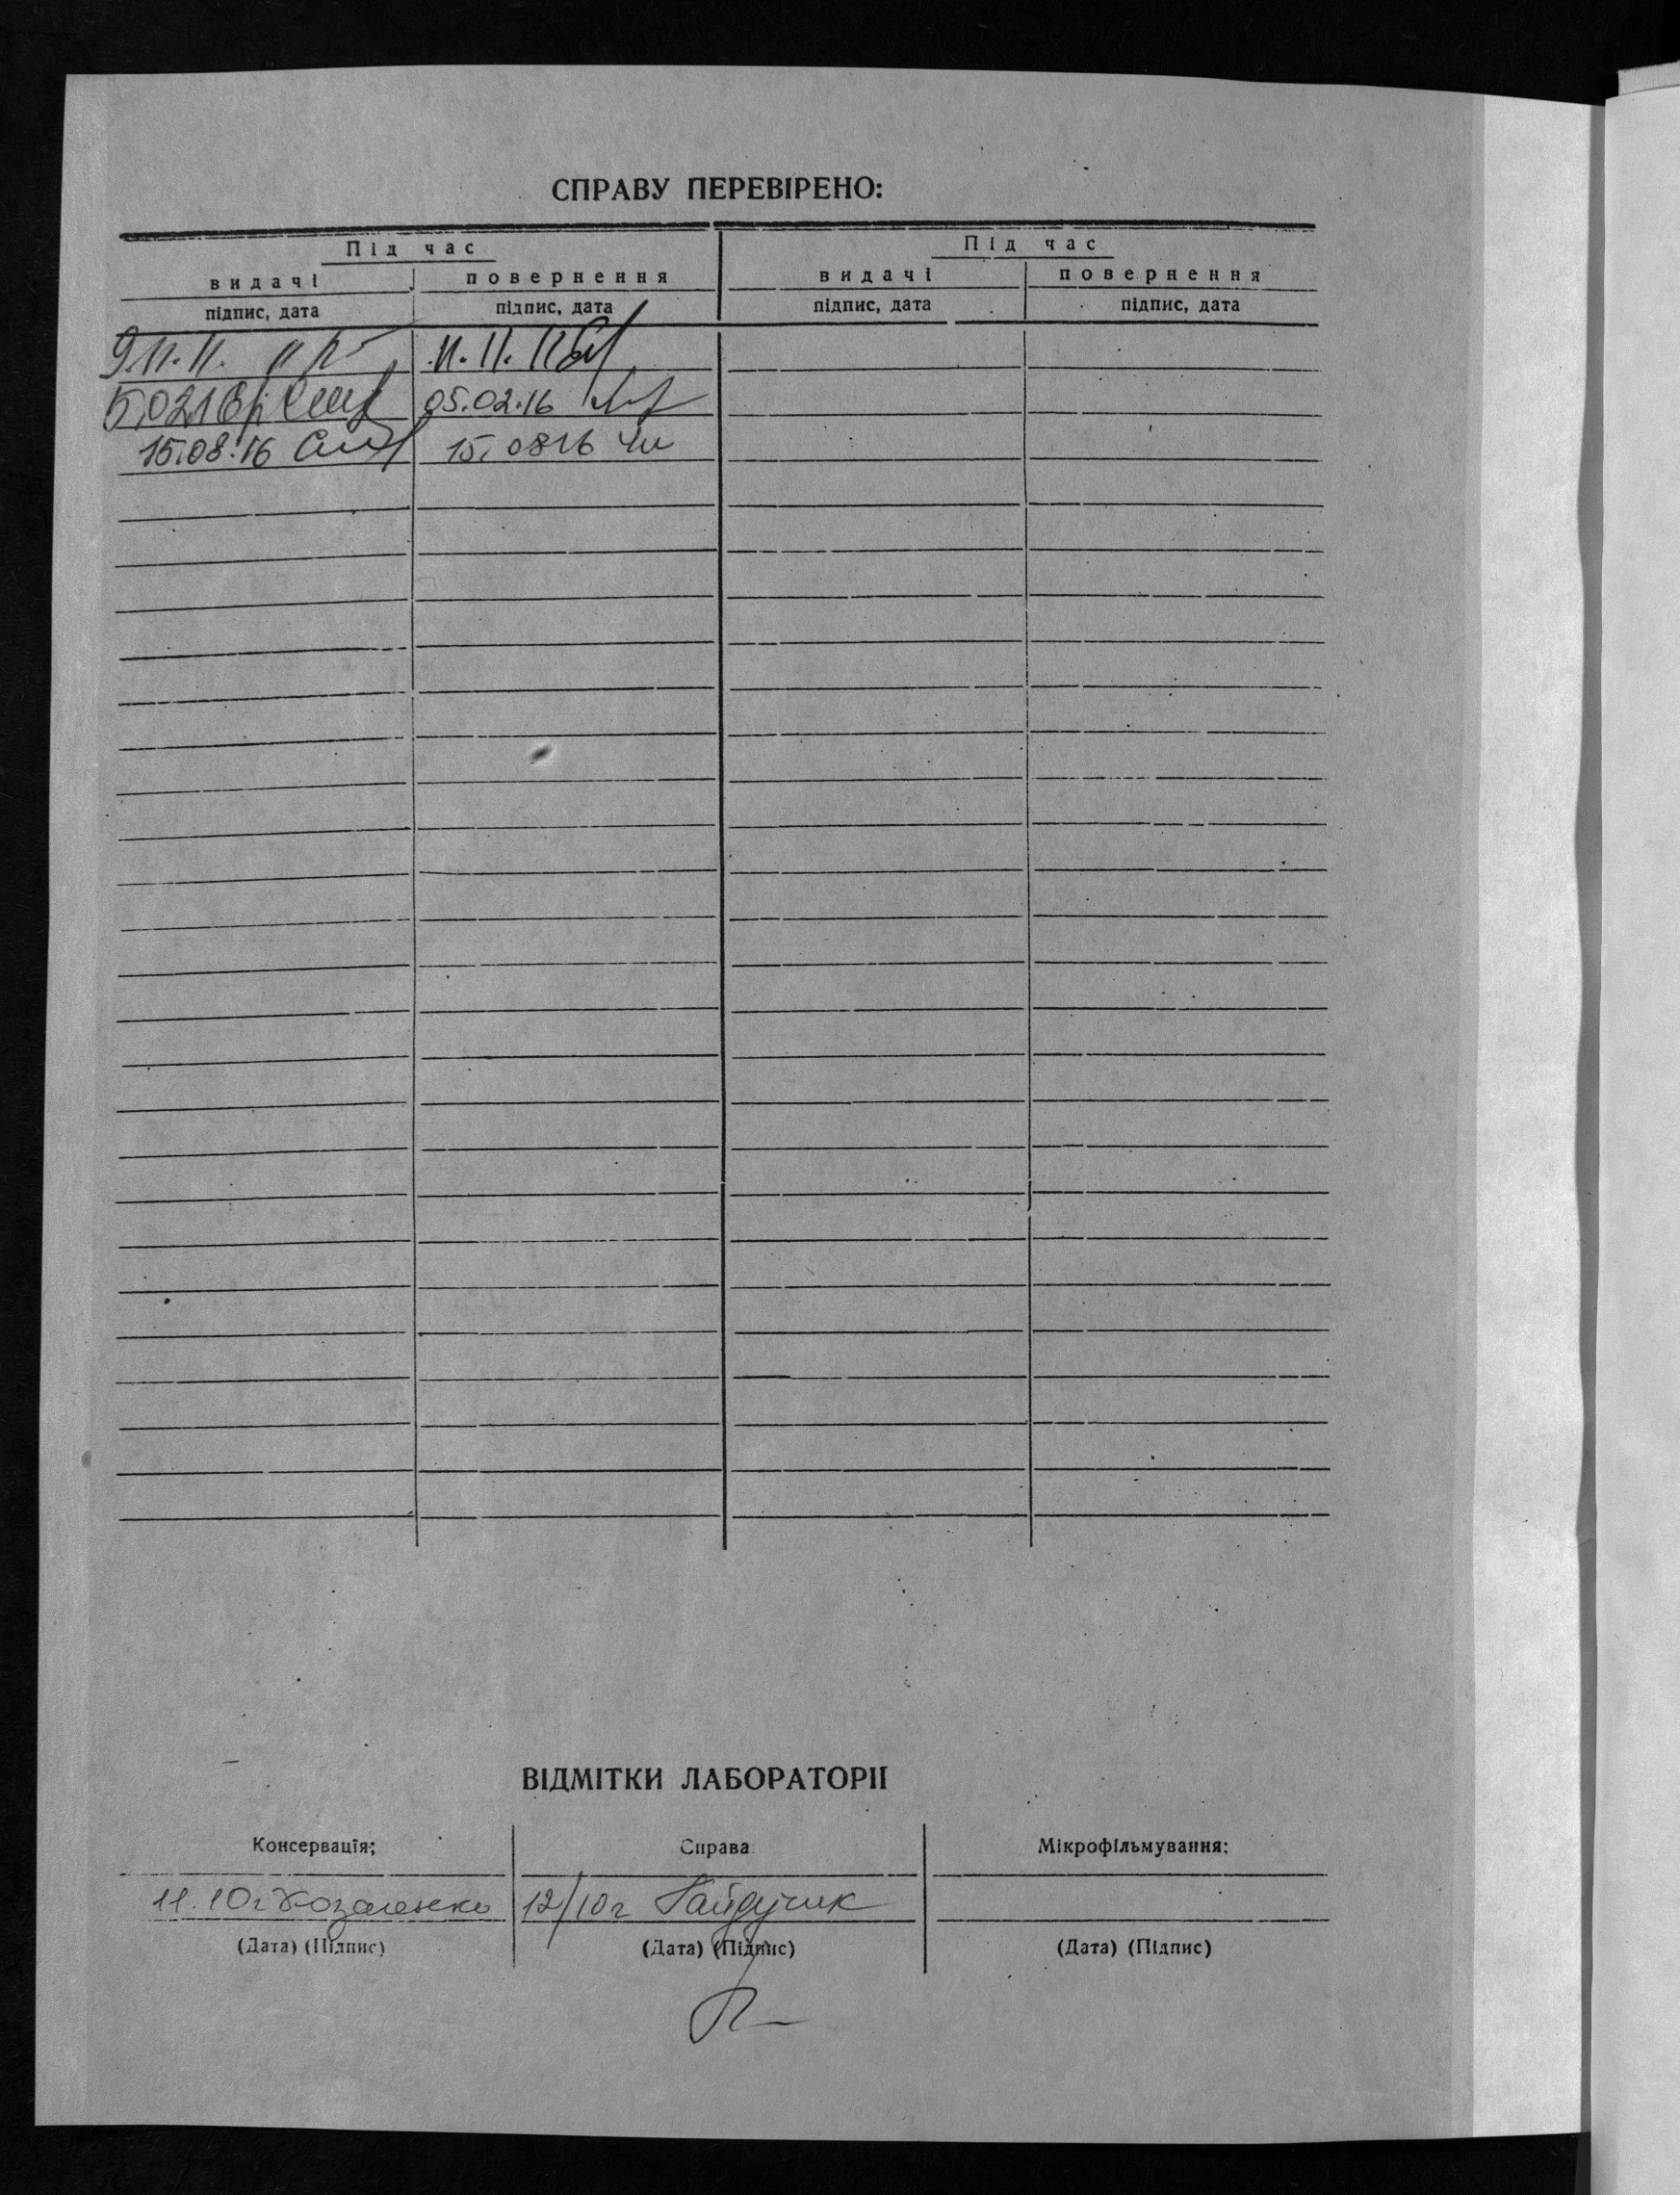 СПРАВУ ПЕРЕВІРЕНО:
Під час Під час
видачі повернення видачі повернення
підпис, дата підпис, дата підпис, дата підпис, дата
9.11.11. 11.11.11
5.02.16 05.02.16
15.08.16 15.0816
ВІДМІТКИ ЛАБОРАТОРІІ
Консервація; Справа Мікрофільмування:
11.10г Козаченко 12/10г Гайдучик
(Дата) (Підпис) (Дата) (Підпис) (Дата) (Підпис)